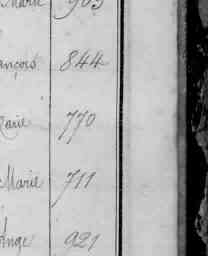 Marie 903
ançois 844
Marie 770
Marie 711
Ange 921